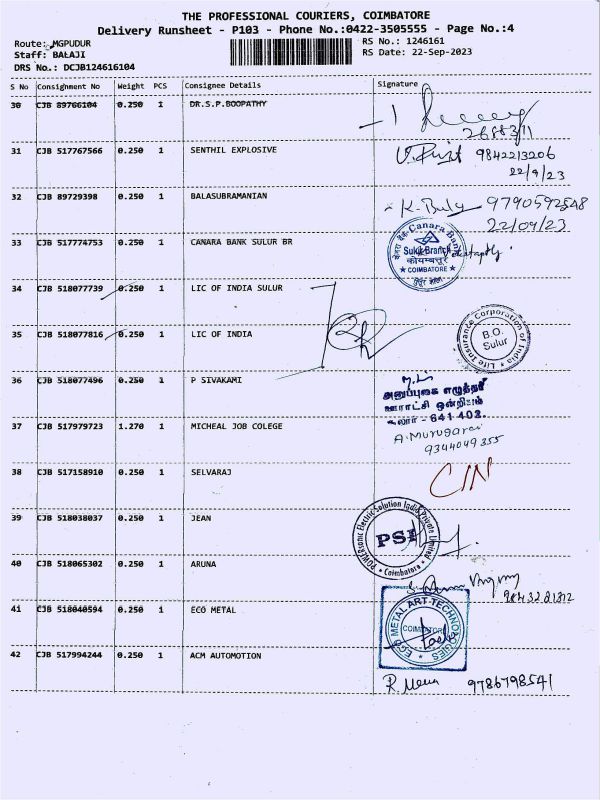 THE PROFESSIONAL COURIERS, COIMBATORE
Delivery Runsheet - P103 - Phone No.:0422-3505555 - Page No.:4
Route: MGPUDUR
RS No.: 1246161
Staff: BALAJI
RS Date: 22-Sep-2023
DRS No.: DCJB124616104
S No Consignment No Weight PCS Consignee Details Signature
30 CJB 89766104 0.250 1 DR.S.P.BOOPATHY
31 CJB 517767566 0.250 1 SENTHIL EXPLOSIVE 9842213206
22/9/23
32 CJB 89729398 0.250 1 BALASUBRAMANIAN 9790592548
22/09/23
33 CJB 517774753 0.250 1 CANARA BANK SULUR BR
Canara Bank
Sulur Branch
कोयम्बत्तूर
COIMBATORE
34 CJB 518077739 0.250 1 LIC OF INDIA SULUR
35 CJB 518077816 0.250 1 LIC OF INDIA
Life Insurance Corporation of India
B.O.
Sulur
36 CJB 518077496 0.250 1 P SIVAKAMI
ஊராட்சி ஒன்றியம்
சூலூர் - 641 402
37 CJB 517979723 1.270 1 MICHEAL JOB COLEGE
A.Murugaraj
9344049355
38 CJB 517158910 0.250 1 SELVARAJ
39 CJB 518038037 0.250 1 JEAN
POWERsonic Electric Solution India Private Limited
PSI
Coimbatore
40 CJB 518065302 0.250 1 ARUNA
41 CJB 518040594 0.250 1 ECO METAL
ECO METAL ART TECHNOLOGIES
COIMBATORE
42 CJB 517994244 0.250 1 ACM AUTOMOTION
R. Mena 9786798541